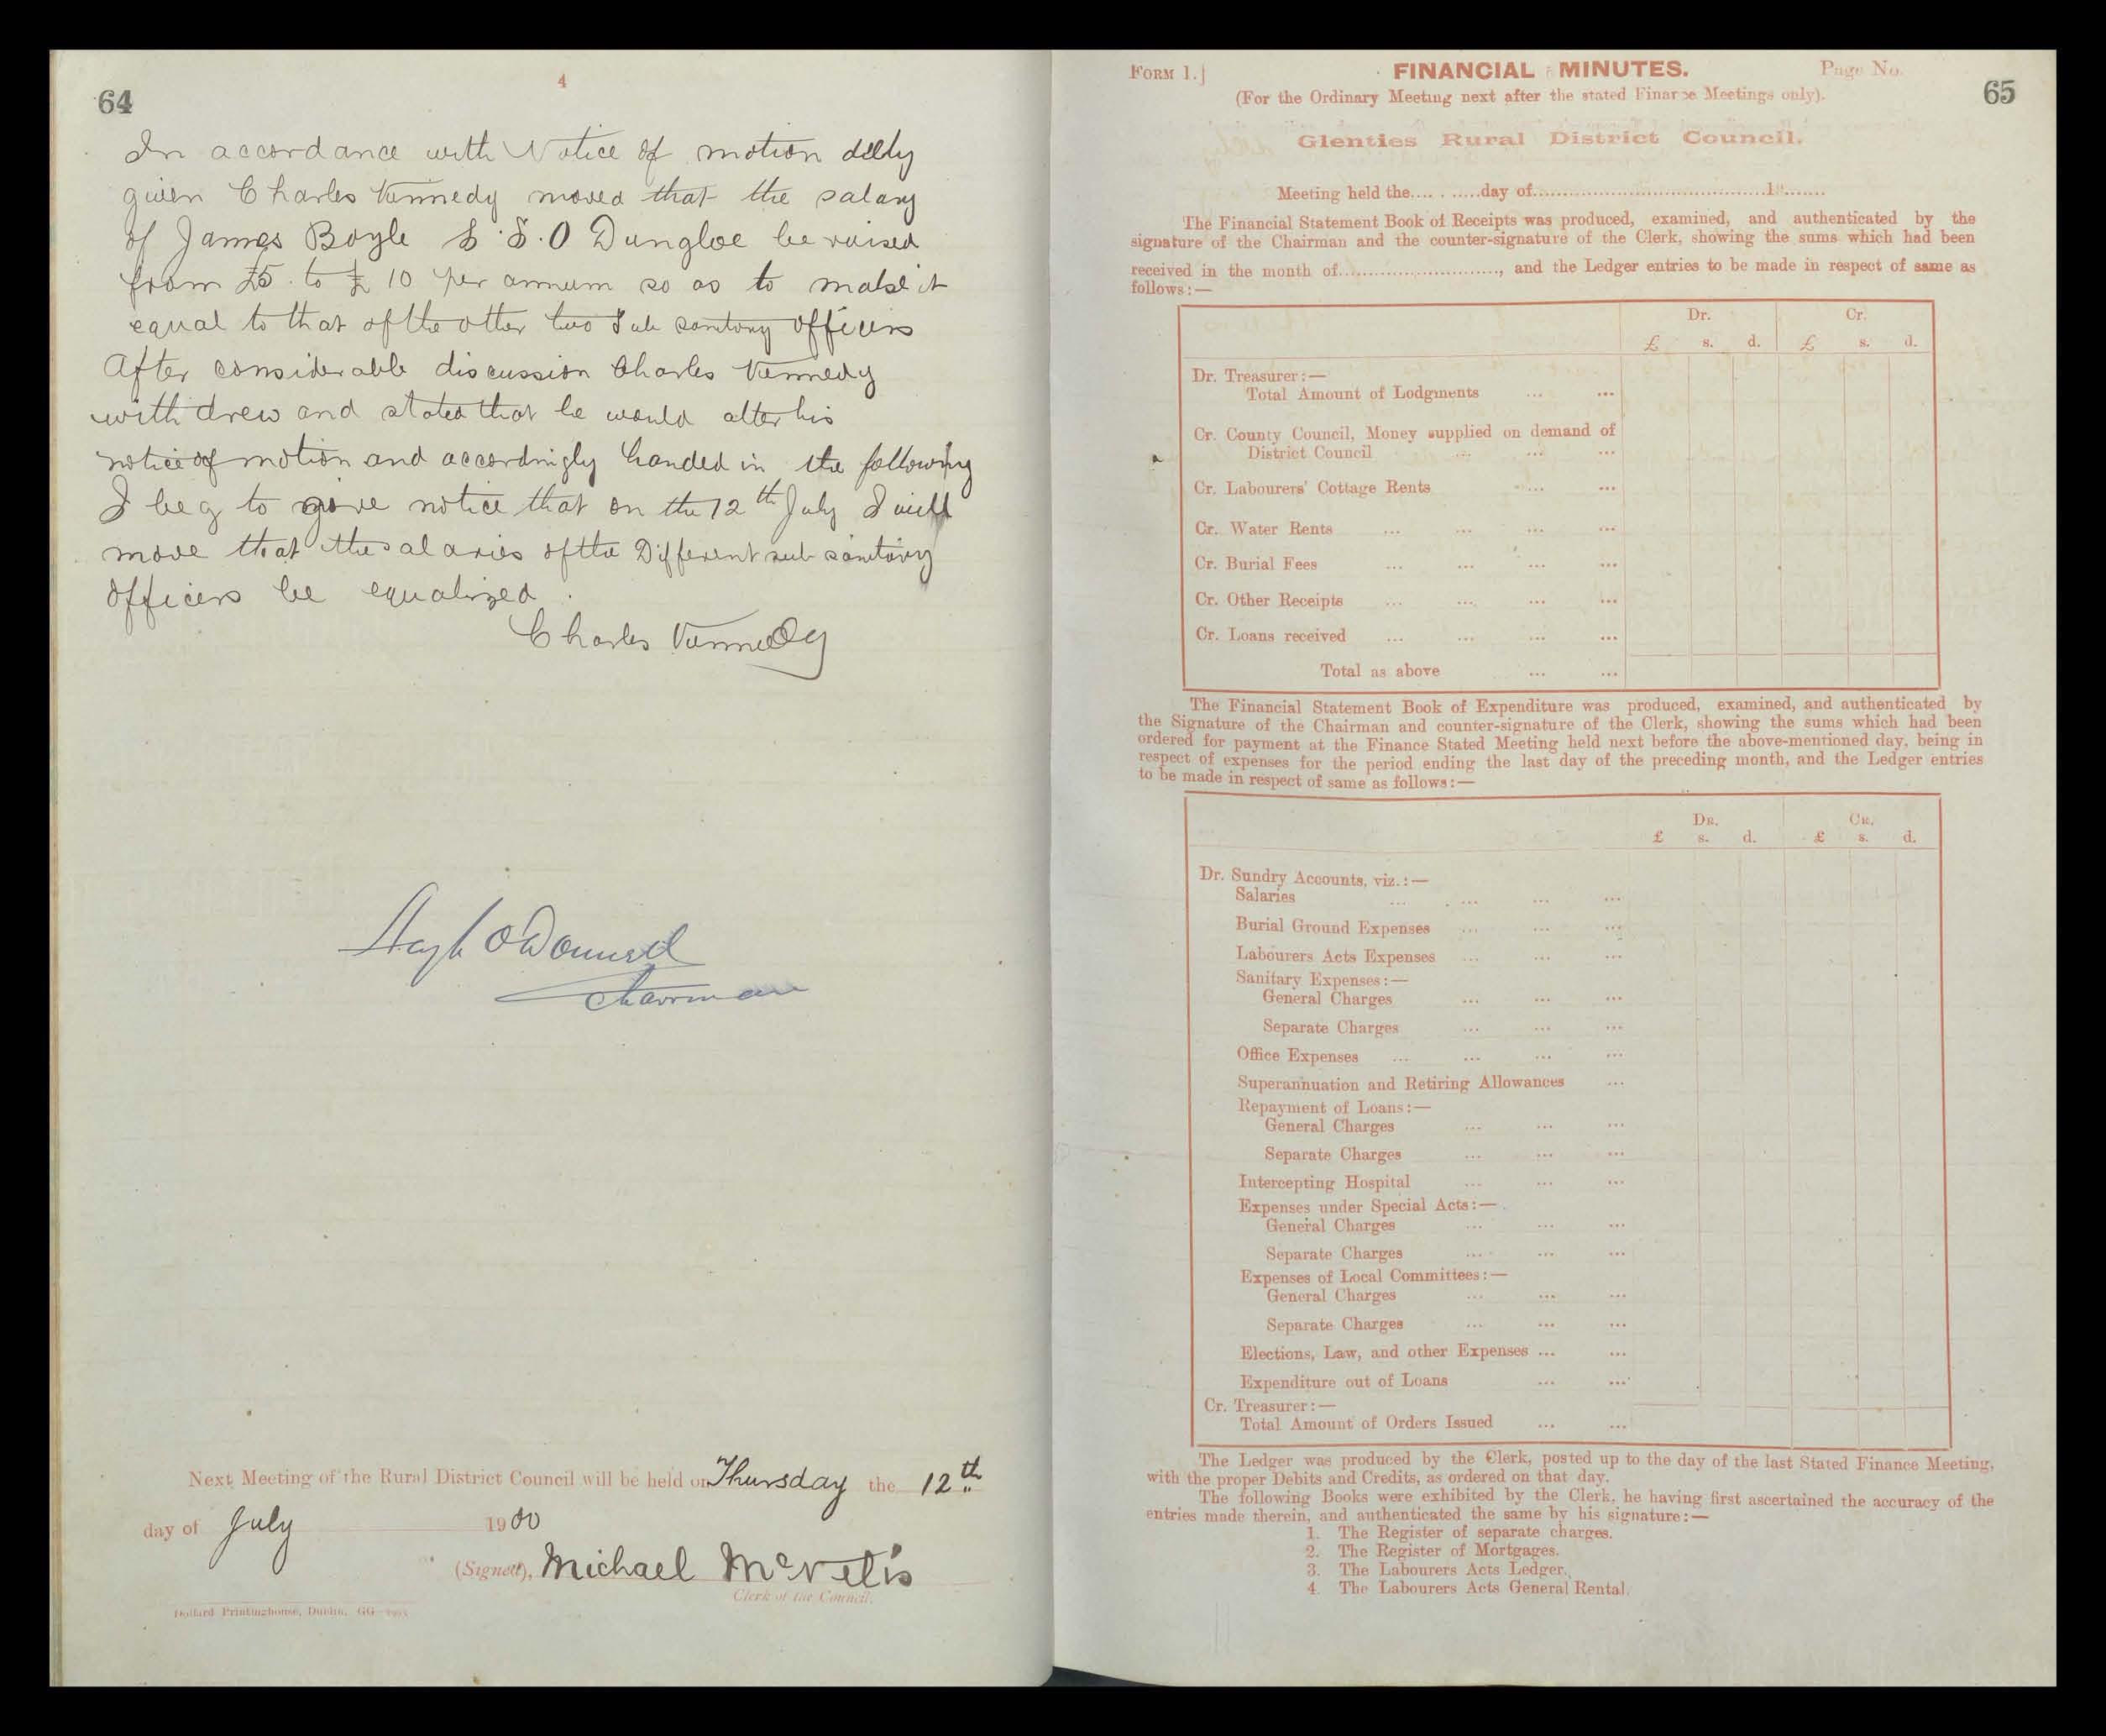 4
64
In accordance with Notice of motion dully
given Charles Kennedy moved that the salary
of James Boyle S.S.O Dungloe be raised
from £5 to £10 per annum so as to make it
equal to that of the other two Sub sanitary officers
After considerable discussion Charles Kennedy
withdrew and stated that he would alter his
notice of motion and accordingly handed in the following
I beg to give notice that on the 12th July I will
move that the salaries of the Different sub sanitary
officers be equalized.
Charles Kennedy
Hugh O'Donnell
Chairman
Next Meeting of the Rural District Council will be held on Thursday the 12th
day of July 1900
(Signed), Michael McNelis
Clerk of the Council.
Dollard Printinghouse, Dublin. GG
FORM 1.] FINANCIAL MINUTES. Page No.
65
(For the Ordinary Meeting next after the stated Finance Meetings only).
Glenties Rural District Council.
Meeting held the..........day of........................................1.......
The Financial Statement Book of Receipts was produced, examined, and authenticated by the
signature of the Chairman and the counter-signature of the Clerk, showing the sums which had been
received in the month of..........................., and the Ledger entries to be made in respect of same as
follows:—
Dr. Cr.
£ s. d. £ s. d.
Dr. Treasurer:—
Total Amount of Lodgments ... ...
Cr. County Council, Money supplied on demand of
District Council ... ... ...
Cr. Labourers' Cottage Rents ... ...
Cr. Water Rents ... ... ... ...
Cr. Burial Fees ... ... ... ...
Cr. Other Receipts ... ... ... ...
Cr. Loans received ... ... ... ...
Total as above ... ...
The Financial Statement Book of Expenditure was produced, examined, and authenticated by
the Signature of the Chairman and counter-signature of the Clerk, showing the sums which had been
ordered for payment at the Finance Stated Meeting held next before the above-mentioned day, being in
respect of expenses for the period ending the last day of the preceding month, and the Ledger entries
to be made in respect of same as follows:—
DR. CR.
£ s. d. £ s. d.
Dr. Sundry Accounts, viz.:—
Salaries ... ... ... ...
Burial Ground Expenses ... ... ...
Labourers Acts Expenses ... ... ...
Sanitary Expenses:—
General Charges ... ... ...
Separate Charges ... ... ...
Office Expenses ... ... ... ...
Superannuation and Retiring Allowances ...
Repayment of Loans:—
General Charges ... ... ...
Separate Charges ... ... ...
Intercepting Hospital ... ... ...
Expenses under Special Acts:—
General Charges ... ... ...
Separate Charges ... ... ...
Expenses of Local Committees:—
General Charges ... ... ...
Separate Charges ... ... ...
Elections, Law, and other Expenses ... ...
Expenditure out of Loans ... ...
Cr. Treasurer:—
Total Amount of Orders Issued ... ...
The Ledger was produced by the Clerk, posted up to the day of the last Stated Finance Meeting,
with the proper Debits and Credits, as ordered on that day.
The following Books were exhibited by the Clerk, he having first ascertained the accuracy of the
entries made therein, and authenticated the same by his signature:—
1. The Register of separate charges.
2. The Register of Mortgages.
3. The Labourers Acts Ledger.
4. The Labourers Acts General Rental.